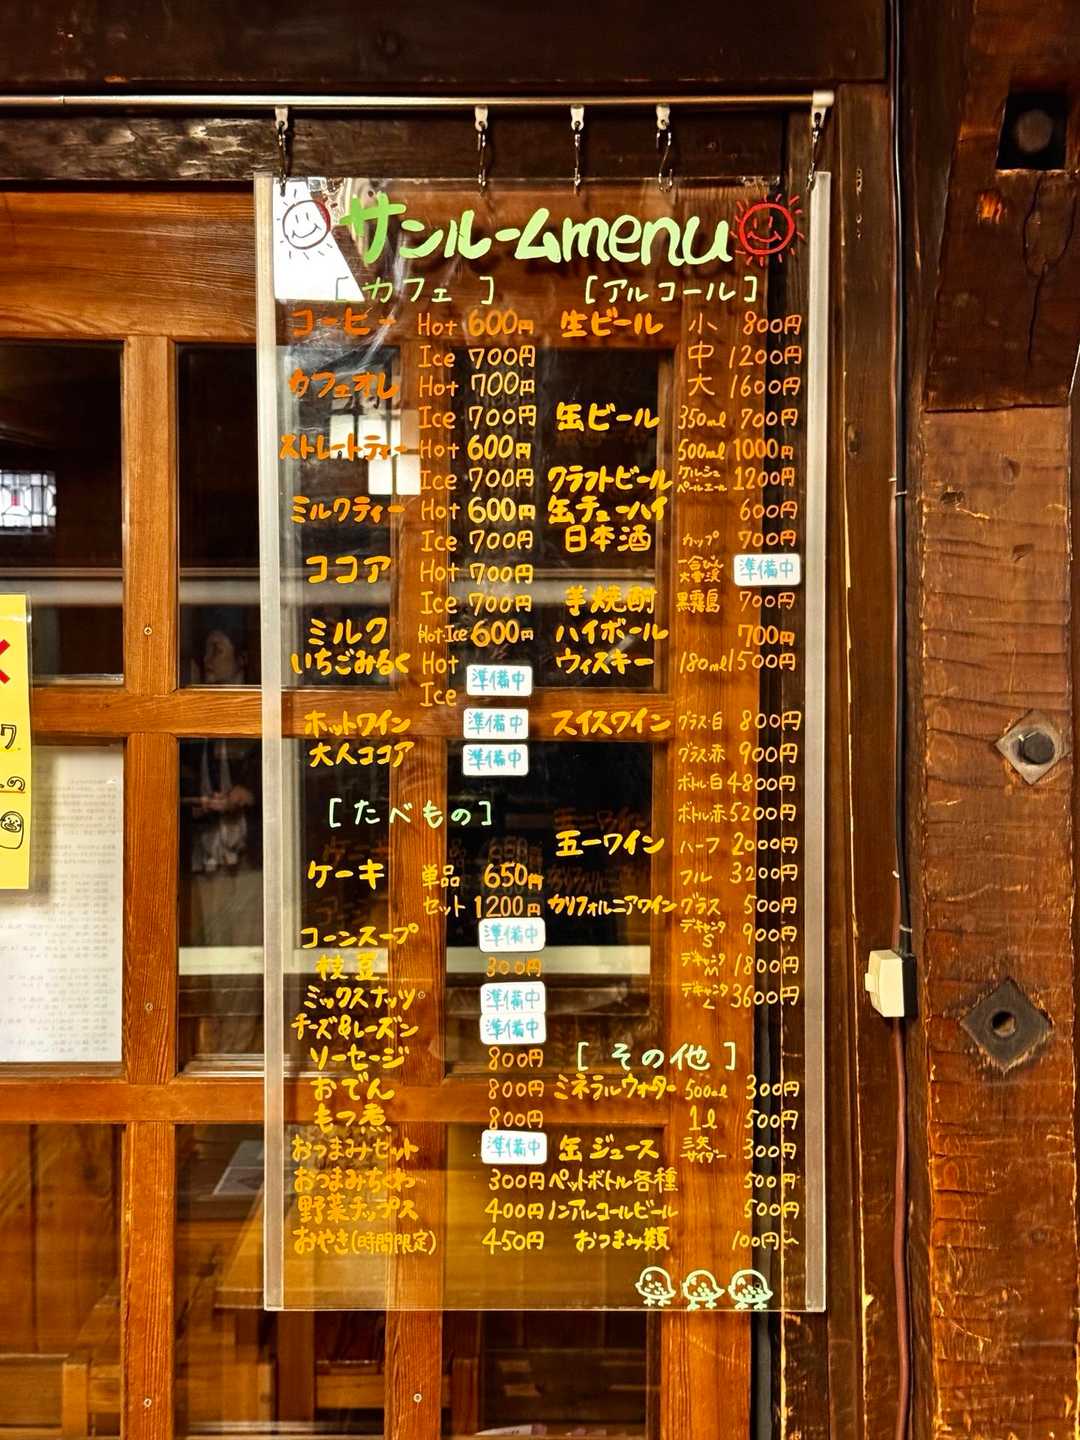 サンルームmenu
[カフェ]
コーヒー Hot 600円
Ice 700円
カフェオレ Hot 700円
Ice 700円
ストレートティー Hot 600円
Ice 700円
ミルクティー Hot 600円
Ice 700円
ココア Hot 700円
Ice 700円
ミルク Hot・Ice 600円
いちごみるく Hot 準備中
Ice
ホットワイン 準備中
大人ココア 準備中
[たべもの]
ケーキ 単品 650円
セット 1200円
コーンスープ 準備中
枝豆 300円
ミックスナッツ 準備中
チーズ&レーズン 準備中
ソーセージ 800円
おでん 800円
もつ煮 800円
おつまみセット 準備中
おつまみちくわ 300円
野菜チップス 400円
おやき(時間限定) 450円
[アルコール]
生ビール 小 800円
中 1200円
大 1600円
缶ビール 350ml 700円
500ml 1000円
クラフトビール ケルシュ ペールエール 1200円
缶チューハイ 600円
日本酒 カップ 700円
一合びん 大雪渓 準備中
芋焼酎 黒霧島 700円
ハイボール 700円
ウィスキー 180ml 1500円
スイスワイン グラス・白 800円
グラス・赤 900円
ボトル・白 4800円
ボトル・赤 5200円
五一ワイン ハーフ 2000円
フル 3200円
カリフォルニアワイン グラス 500円
デキャンタ S 900円
デキャンタ M 1800円
デキャンタ L 3600円
[その他]
ミネラルウォーター 500ml 300円
1l 500円
缶ジュース 三矢サイダー 300円
ペットボトル各種 500円
ノンアルコールビール 500円
おつまみ類 100円〜